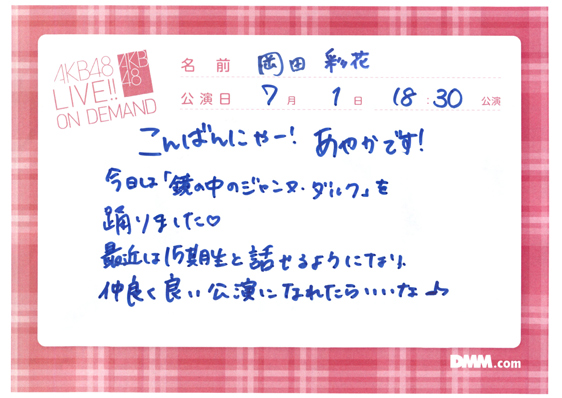 AKB48
LIVE!!
ON DEMAND
AKB
48
名前 岡田 彩花
公演日 7月 1日 18:30 公演
こんばんにゃー! あやかです!
今日は「鏡の中のジャンヌ・ダルク」を
踊りました♡
最近は15期生と話せるようになり、
仲良く良い公演になれたらいいな♪
DMM.com